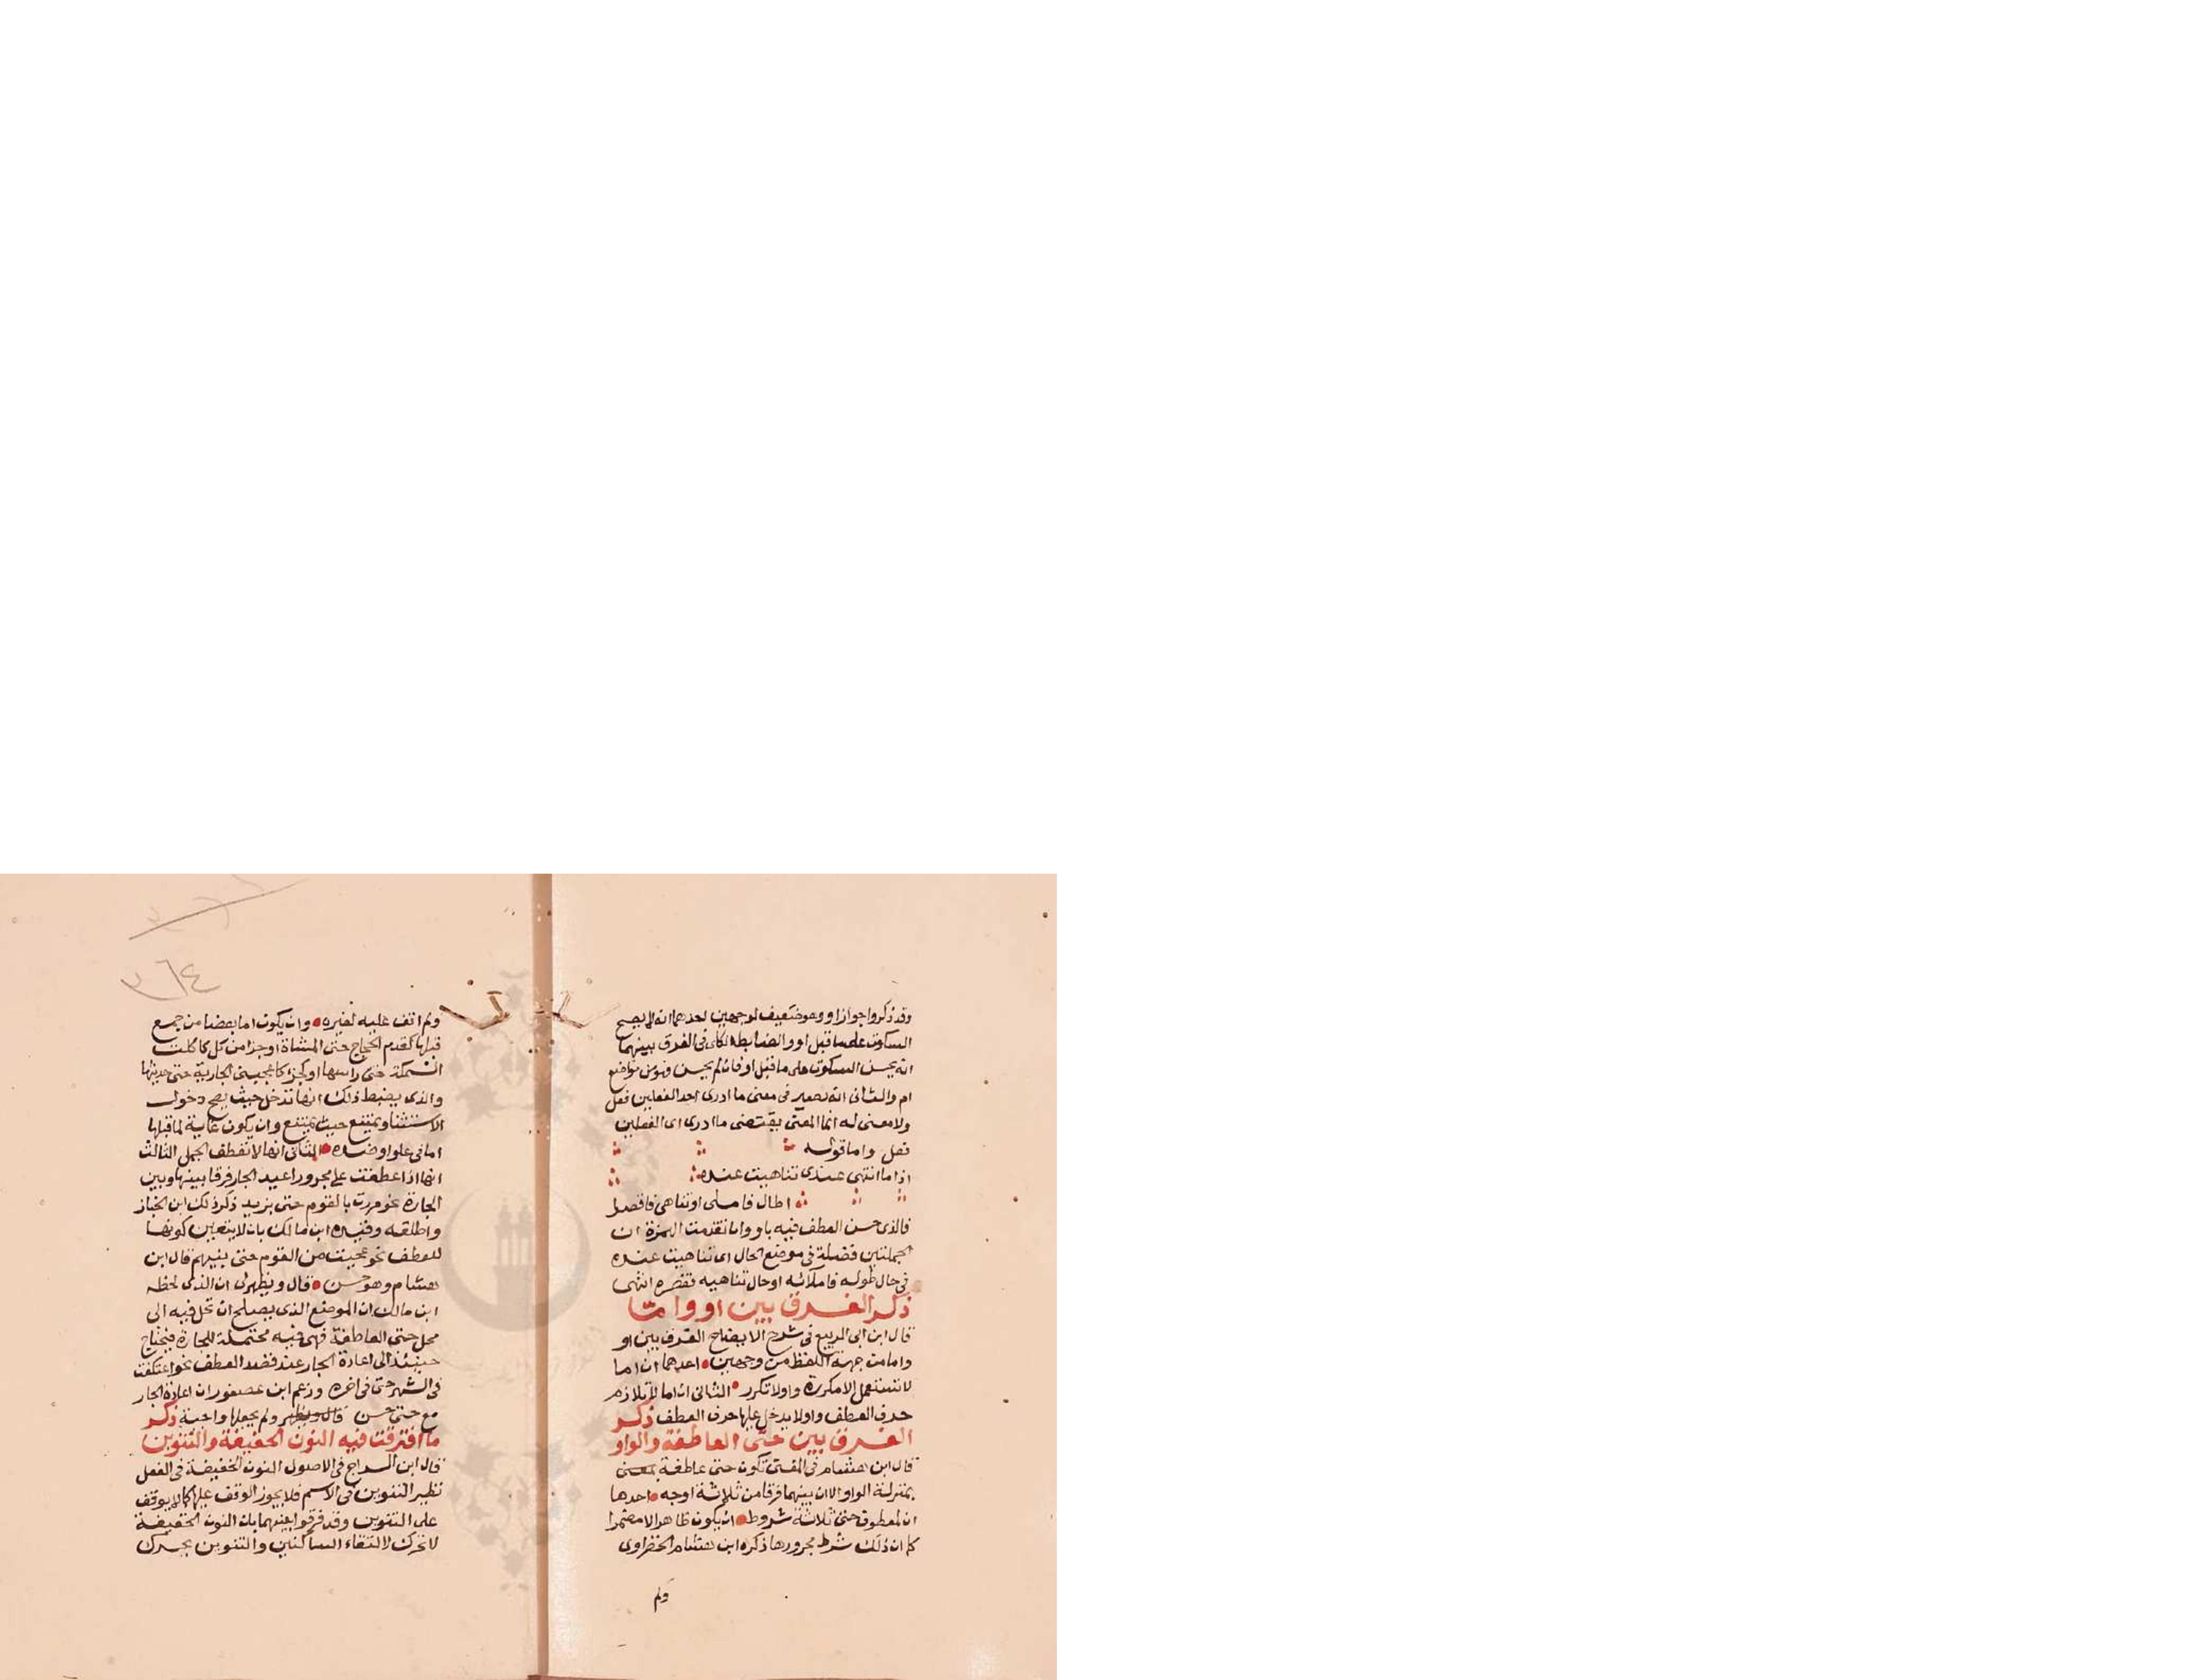 وقد ذكروا جواز او وهو ضعيف لوجهين احدهما انه لا يصح
السكوت على ما قبل او والضابط الكلى فى الفرق بينهما
انه يحسن السكوت على ما قبل او فان لم يحسن فهو من مواضع
ام والثانى انه يصير فى معنى ما ادرى احد الفعلين فعل
ولا معنى له انما المعنى يقتضى ما ادرى اى الفعلين
فعل واما قوله
اذا ما انتهى عندى تناهيت عنده
اطال فاملى او تناهى فاقصرا
فالذى حسن العطف فيه باو وان تقدمت الهمزة ان
الجملتين فضلة فى موضع الحال اى تناهيت عنده
فى حال طوله فاملائه او حال تناهيه فقصره انتهى
ذكر الفرق بين او واما
قال ابن ابى الربيع فى شرح الايضاح الفرق بين او
واما من جهة اللفظ من وجهين احدهما ان اما
لا تستعمل الا مكررة واو لا تكرر الثانى ان اما لا تلازم
حرف العطف واو لا يدخل عليها حرف العطف ذكر
الفرق بين حتى العاطفة والواو
قال ابن هشام فى المغنى تكون حتى عاطفة بمعنى
بمنزلة الواو الا ان بينهما فرقا من ثلاثة اوجه احدها
ان لمعطوف حتى ثلاثة شروط ان يكون ظاهرا لا مضمرا
كما ان ذلك شرط مجرورها ذكره ابن هشام الخضراوى
ولم
٣٦٤
ولم اقف عليه لغيره وان يكون اما بعضا من جمع
قبلها كقدم الحجاج حتى المشاة او جزا من كل كاكلت
السمكة حتى راسها او كجزء كاعجبنى الجارية حتى حديثها
والذى يضبط ذلك انها تدخل حيث يصح دخول
الاستثنا وتمتنع حيث يمتنع وان يكون غاية لما قبلها
اما فى علو او ضده الثانى انها لا تعطف الجمل الثالث
انها اذا عطفت على مجرور اعيد الجار فرقا بينها وبين
الجارة نحو مررت بالقوم حتى بزيد ذكر ذلك ابن الخباز
واطلقه وقيده ابن مالك بان لا يتعين كونها
للعطف نحو عجبت من القوم حتى بنيهم قال ابن
هشام وهو حسن قال ويظهر لى ان الذى لحظه
ابن مالك ان الموضع الذى يصلح ان تحل فيه الى
محل حتى العاطفة فهى فيه محتملة للجارة فيحتاج
حينئذ الى اعادة الجار عند قصد العطف نحو اعتكفت
فى الشهر حتى فى اخره وزعم ابن عصفور ان اعادة الجار
مع حتى حسن ولم يجعلها واجبة ذكر
ما افترقت فيه النون الخفيفة والتنوين
قال ابن السراج فى الاصول النون الخفيفة فى الفعل
نظير التنوين فى الاسم فلا يجوز الوقف عليها كما لا يوقف
على التنوين وقد فرقوا بينهما بان النون الخفيفة
لا تحرك لالتقاء الساكنين والتنوين يحرك